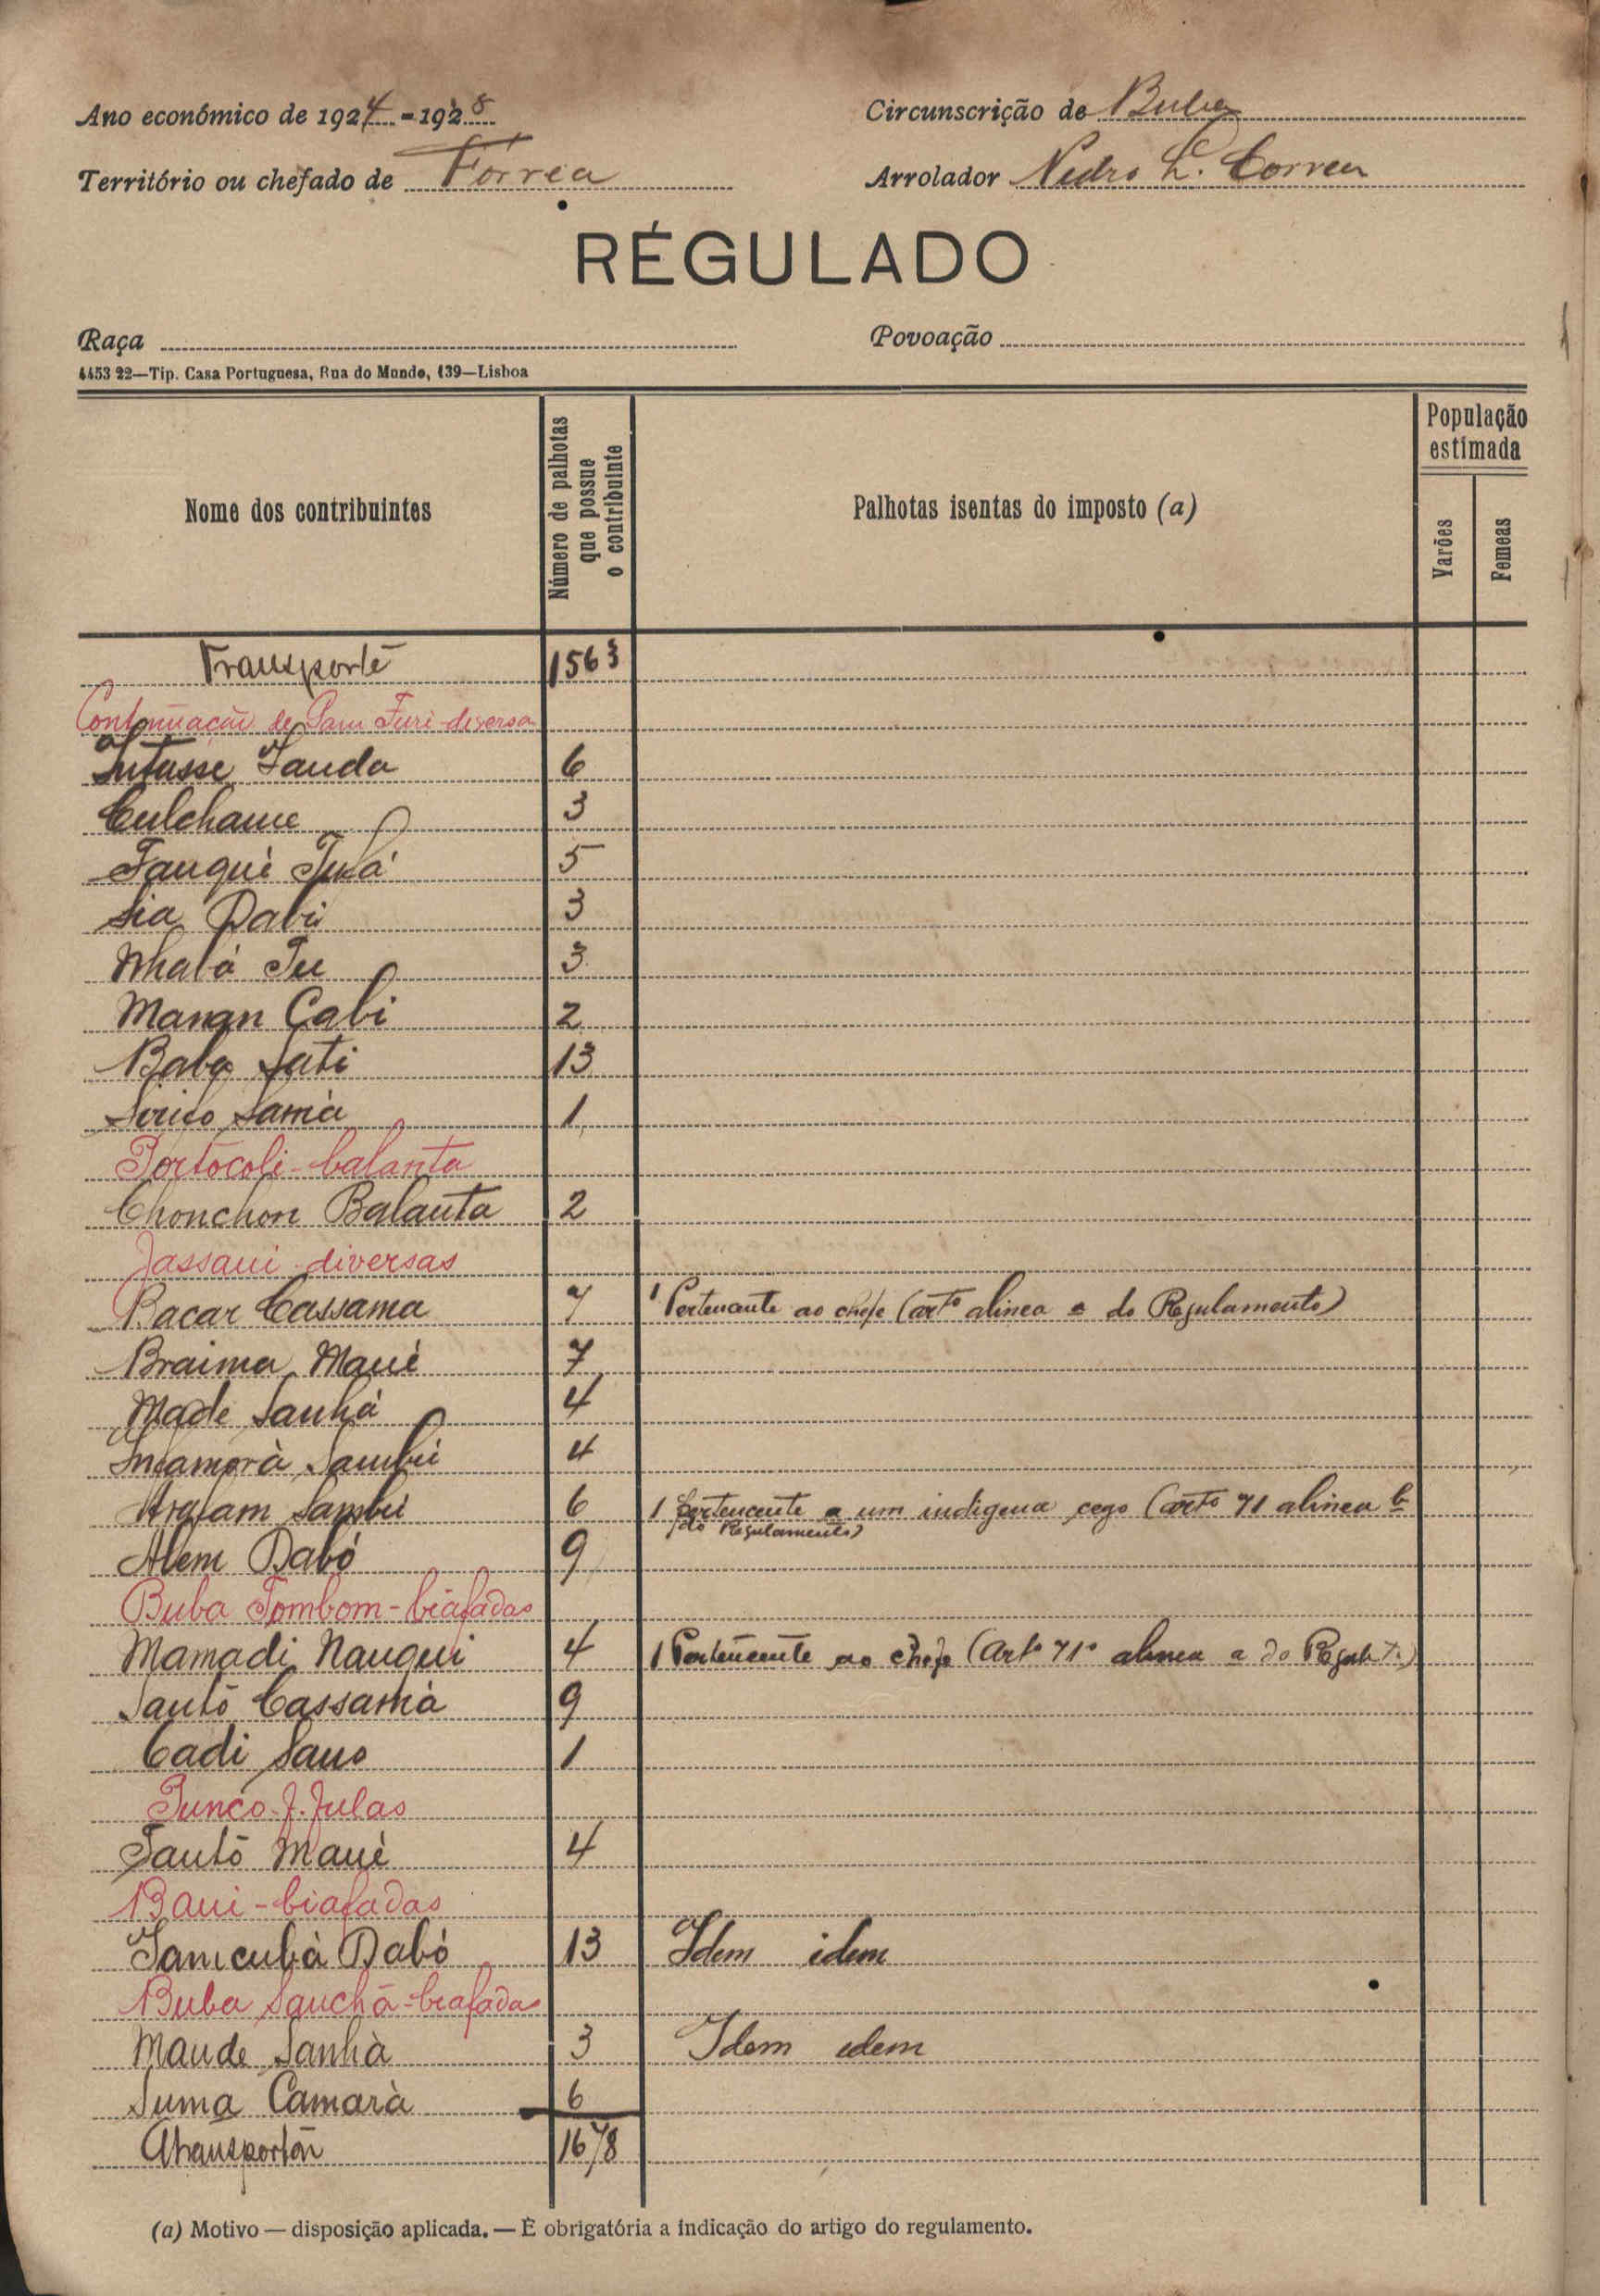 Ano económico de 1924-1928
Circunscrição de Buba
Território ou chefado de Fórrea
Arrolador Pedro L. Correa
RÉGULADO
Raça
Povoação
4453 22—Tip. Casa Portuguesa, Rua do Mundo, 139—Lisboa
Nome dos contribuintes
Número de palhotas que possue o contribuinte
Palhotas isentas do imposto (a)
População estimada
Varões
Femeas
Transporte 1563
Continuação de Turé-diversa
6
Culchame 3
5
Sia Dabú 3
3
Manan Cabi 2
Baba Sati 13
Samà 1
Portocoli-balanta
Chonchon Balanta 2
Jassaui diversas
Bacar Cassama 7 1 Pertencente ao chefe (artº alinea a do Regulamento)
Braima Mané 7
Made Sanhá 4
Incamorà Sambú 4
Arafam Sambú 6 1 Pertencente a um indigena cego (artº 71 alinea b
do Regulamento)
Alem Dabó 9
Buba Tombom-biafadas
Mamadi Nanqui 4 1 Pertencente ao chefe (artº 71º alinea a do Regulto.)
Cassamà 9
Cadi Sano 1
Junco J. Julas
Mané 4
Baui-biafadas
Dabó 13 Idem idem
Buba Sanchà-biafadas
Maude Sanhà 3 Idem idem
Suma Camarà 6
A transportar 1678
(a) Motivo — disposição aplicada. — É obrigatória a indicação do artigo do regulamento.